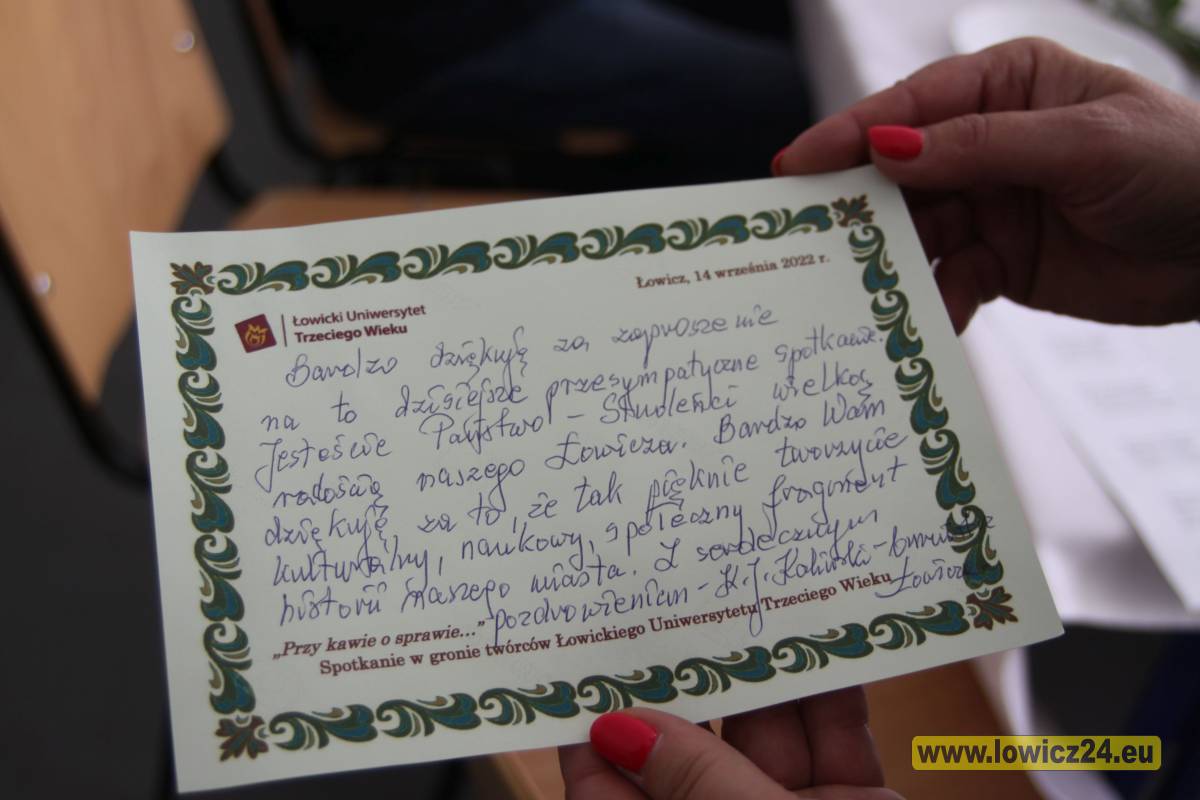 Łowicz, 14 września 2022 r.
Łowicki Uniwersytet
Trzeciego Wieku
Bardzo dziękuję za zaproszenie
na to dzisiejsze przesympatyczne spotkanie.
Jesteście Państwo - Studenci wielką
radością naszego Łowicza. Bardzo Wam
dziękuję za to, że tak pięknie tworzycie
kulturalny, naukowy, społeczny fragment
historii naszego miasta. Z serdecznym
pozdrowieniem - K.J. Kaliński - burmistrz
Łowicza
„Przy kawie o sprawie...”
Spotkanie w gronie twórców Łowickiego Uniwersytetu Trzeciego Wieku
www.lowicz24.eu